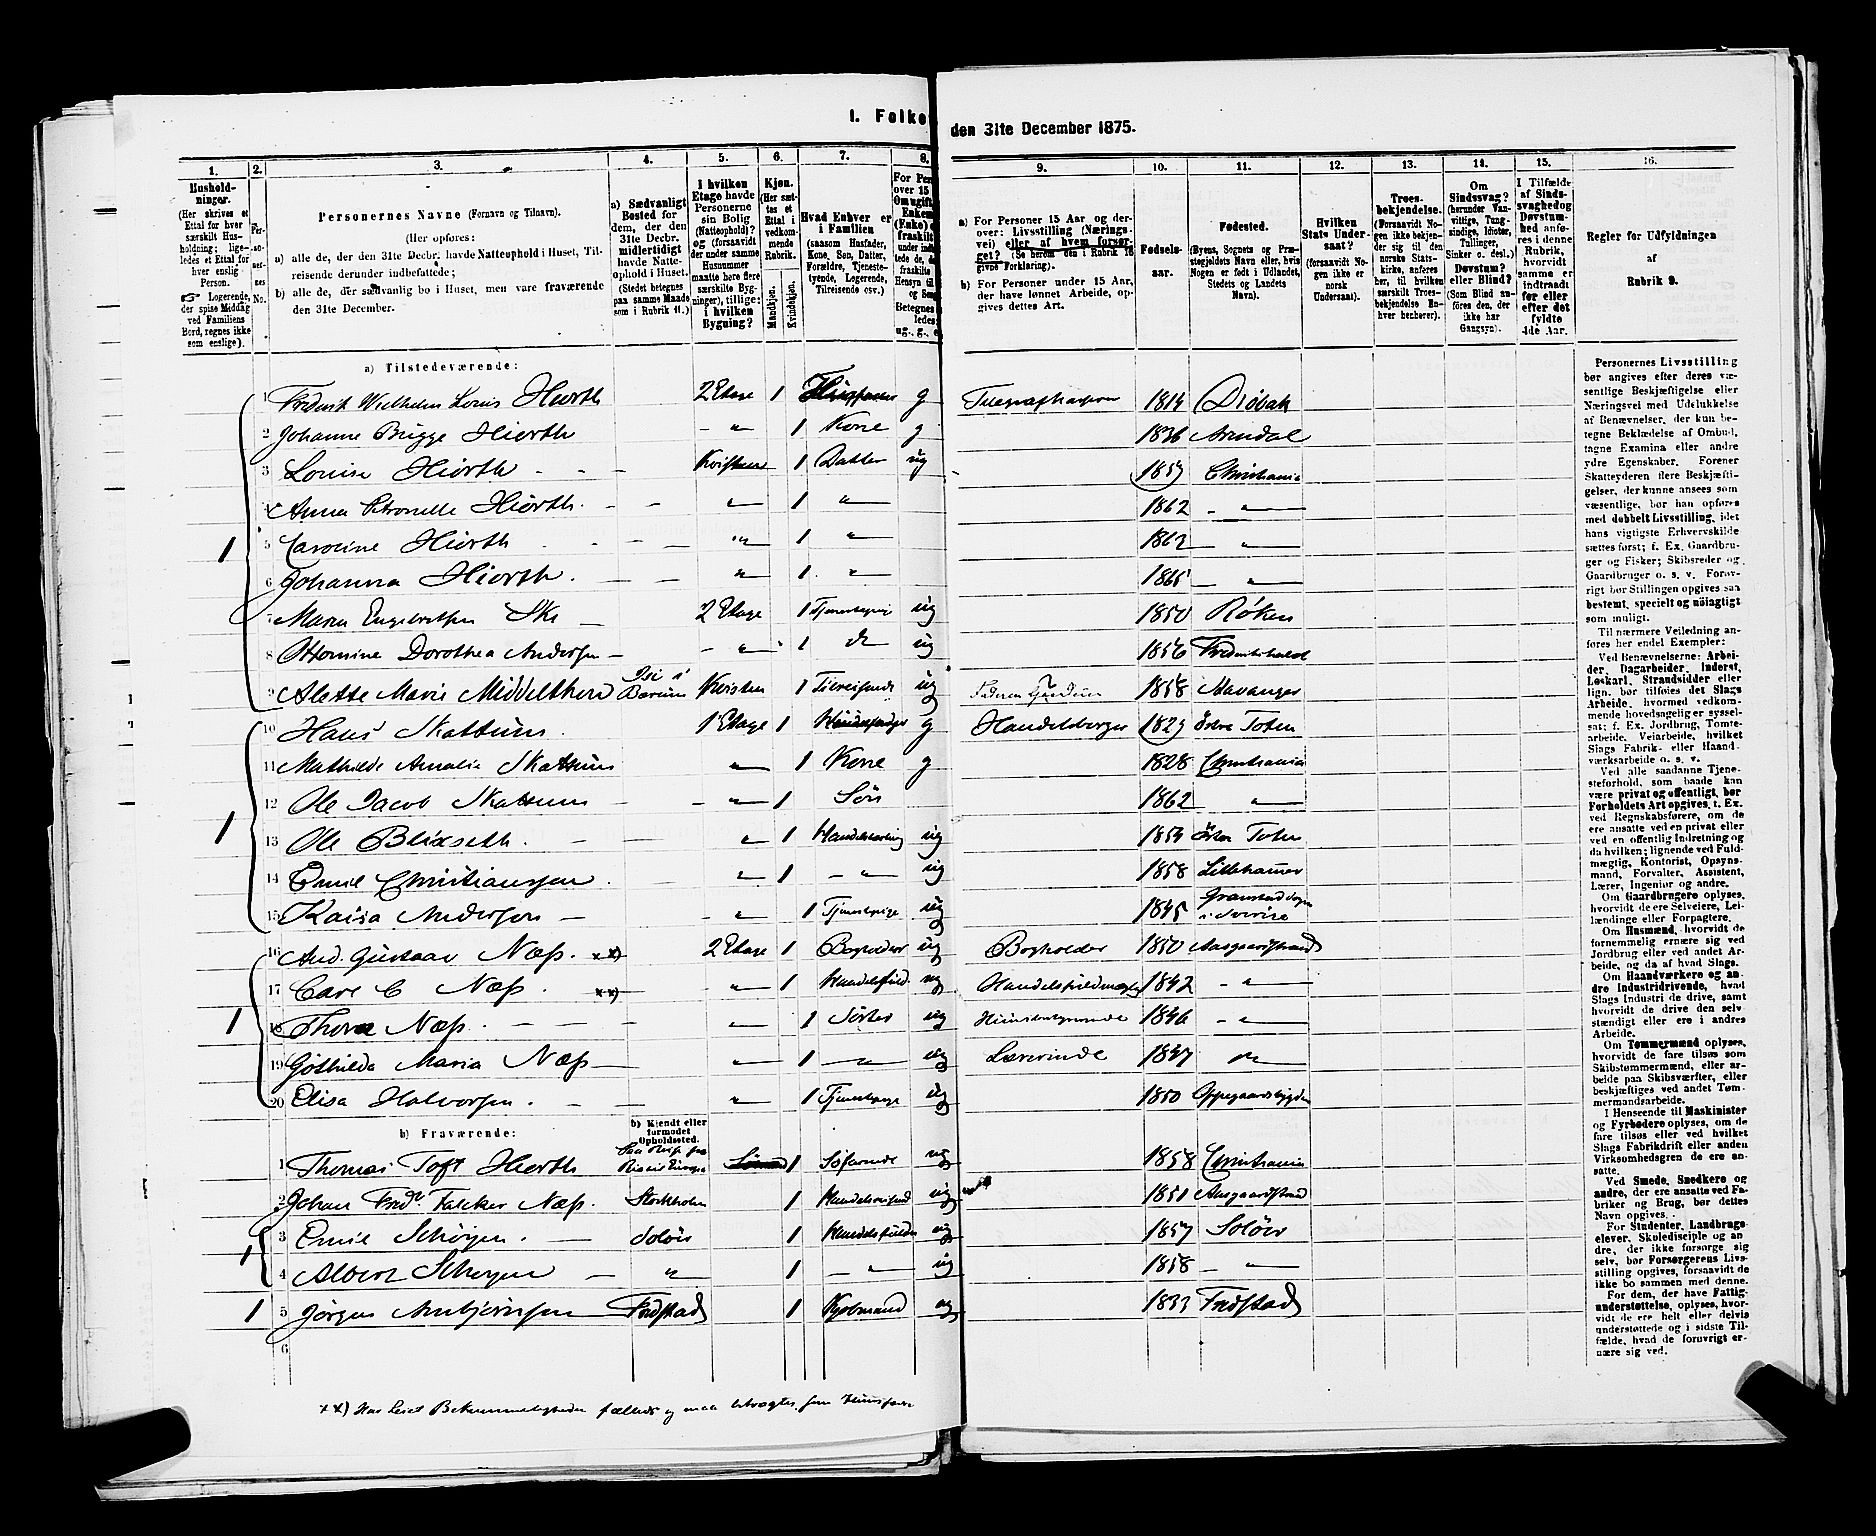 I. Folke
den 31te December 1875.
1. 2. 3. 4. 5. 6. 7. 8. 9. 10. 11. 12. 13. 14. 15. 16.
Hushold-
ninger.
(Her skrives et
Ettal for hver
særskilt Hus-
holdning; lige-
ledes et Ettal for
hver enslig
Person.
☞ Logerende,
der spise Middag
ved Familiens
Bord, regnes ikke
som enslige).
Per-
so-
ner-
nes
No.
Personernes Navne (Fornavn og Tilnavn).
(Her opføres:
a) alle de, der den 31te Decbr. havde Natteophold i Huset, Til-
reisende derunder indbefattede;
b) alle de, der sædvanlig bo i Huset, men vare fraværende
den 31te December.
a) Sædvanligt
Bosted for
dem, der den
31te Decbr.
midlertidigt
havde Natte-
ophold i Huset.
(Stedet betegnes
paa samme Maade
som i Rubrik 11.)
I hvilken
Etage havde
Personerne
sin Bolig
(Natteophold)?
og (forsaavidt
der under samme
Husnummer
maatte here flere
særskilte Byg-
ninger), tillige:
i hvilken
Bygning?
Kjøn.
(Her sæt-
tes et
Ettal i
vedkom-
mende
Rubrik.
Mandkjøn.
Kvindekjøn.
Hvad Enhver er
i Familien
(saasom Husfader,
Kone, Søn, Datter,
Forældre, Tjeneste-
tyende, Logerende,
Tilreisende csv.)
For Per
over 15
Om ugift,
Enkem
(Enke) e
fraskilt
a) For Personer 15 Aar og der-
over: Livsstilling (Nærings-
vei) eller af hvem forsør-
get? (Se herom den i Rubrik 16
givne Forklaring).
b) For Personer under 15 Aar,
der have lønnet Arbeide, op-
gives dettes Art.
Fødsels-
aar.
Fødested.
(Byens, Sognets og Præ-
stegjeldets Navn eller, hvis
Nogen er født i Udlandet,
Stedets og Landets
Navn).
Hvilken
Stats Under-
saat?
(forsaavidt No-
gen ikke er
norsk
Undersaat).
Troes-
bekjendelse.
(Forsaavidt No-
gen ikke bekjen-
der sig til den
norske Stats-
kirke, anføres
her, til hvilken
særskilt Troes-
bekjendelse En-
hver henhører).
Om
Sindssvag?
(herunder Van-
vittige, Tung-
sindige, Idioter,
Tullinger,
Sinker o. desl.)
Døvstum?
eller Blind?
(Som Blind an-
føres den, der
ikke har
Gangsyn).
I Tilfælde
af Sinds-
svaghedog
Døvstum-
hed anfø-
res i denne
Rubrik,
hvorvidt
samme er
indtraadt
før eller
efter det
fyldte
4de Aar.
Regler for Udfyldningen
af
Rubrik 9.
a) Tilstedeværende:
1 Frederik Wielhelm Louis Hiorth 2 Etage 1 g 1814 Drøbak
2 Johanne Brygge Hiorth - " 1 Kone g 1836 Arendal
3 Louise Hiorth 1 Datter ug 1857 Christiania
4 Anna Petronelle Hiorth " 1 " 1862 - "
5 Caroline Hiorth " 1 " 1862 "
6 Johanna Hiorth " 1 " 1865 "
7 Maren Engebretsen 2 Etage 1 Tjenestepige ug 1850 Røken
8 Dorothea Andersen " 1 do ug 1856 Frederikshald
9 Alette Marie Middelthon Bærum Kvisten 1 Tilreisende ug 1858 Stavanger
1 10 Hans Skattum 1 Etage 1 g Handelsborger 1829 Østre Toten
11 Mathilde Amalia Skattum " 1 Kone g 1828 Christiania
12 Ole Jacob Skattum " 1 Søn 1862 "
1 13 Ole Blixseth " 1 ug 1854 Østre Toten
14 Emil Christiansen " 1 - " ug 1858 Lillehamer
15 Kaisa Andersen " 1 Tjenestepige ug 1845
16 And. Gustav Næss. xx) 2 Etage 1 Bogholder ug Bogholder 1850 Aasgaardstrand
17 Carl C Næss xx) " 1 ug Handelsfuldmægtig 1842 - "
1 18 Thora Næss " 1 Søster ug 1846 - "
19 Gothilda Maria Næss " 1 " ug Lærerinde 1837 "
20 Elisa Halvorsen " 1 Tjenestepige ug 1850
b) Fraværende:
b) Kjendt eller
formodet
Opholdssted.
1 Thomas Toft Hiorth 1 Søfarende ug 1858 Christiania
2 Johan Fredr Falcker Næss Stockholm 1 ug 1851 Aasgaardstrand
3 Emil Schørgen Solør 1 ug 1857 Solør
1 4 Albert Schørgen " 1 - " ug 1858 - "
1 5 Jørgen Anbjørnsen Fredstad 1 Kjøbmand ug 1833 Fredstad
6
xx) Har leiet fælleds og maa betragtes som Huusfædre
Personernes Livsstilling
bør angives efter deres væ-
sentlige Beskjæftigelse eller
Næringsvei med Udelukkelse
af Benævnelser, der kun be-
tegne Beklædelse af Ombud,
tagne Examina eller andre
ydre Egenskaber. Forener
Skatteyderen flere Beskjæfti-
gelser, der kunne ansees som
væsentlige, bør han opføres
med dobbelt Livsstilling, idet
hans vigtigste Erhvervskilde
sættes først; f. Ex. Gaardbru-
ger og Fisker; Skibsreder og
Gaardbruger o. s. v. Forøv-
rigt bør Stillingen opgives saa
bestemt, specielt og nöiagtigt
som muligt.
Til nærmere Veiledning an-
føres her endel Exempler:
Ved Benævnelserne: Arbei-
der, Dagarbeider, Inderst,
Løskarl, Strandsidder eller
lign. bør tilføies det Slags
Arbeide, hvormed vedkom-
mende hovedsagelig er syssel-
sat; f. Ex. Jordbrug, Tomte-
arbeide, Veiarbeide, hvilket
Slags Fabrik- eller Haand-
værksarbeide o. s. v.
Ved alle saadanne Tjene-
steforhold, som baade kan
være privat og offentligt, bør
Forholdets Art opgives, t. Ex.
ved Regnskabsførere, om de
ere ansatte ved en privat eller
ved en offentlig Indretning og
da hvilken; lignende ved Fuld-
mægtig, Kontorist, Opsyns-
mand, Forvalter, Assistent,
Lærer, Ingeniør og andre.
Om Gaardbrugere oplyses,
hvorvidt de ere Selveiere, Lei-
lændinge eller Forpagtere.
Om Husmænd, hvorvidt de
fornemmelig ernære sig ved
Jordbrug eller ved andet Ar-
beide, og da af hvad Slags.
Om Haandværkere og an-
dre Industridrivende, hvad
Slags Industri de drive, samt
hvorvidt de drive den selv-
stændigt eller ere i andres
Arbeide.
Om Tømmermænd oplyses,
hvorvidt de fare tilsøs som
Skibstømmermænd, eller ar-
beide paa Skibsværfter, eller
beskjæftiges ved andet Tøm-
mermandsarbeide.
I Henseende til Maskinister
og Fyrbødere oplyses, om de
fare tilsøs eller ved hvilket
Slags Fabrikdrift eller anden
Virksomhedsgren de ere an-
satte.
Ved Smede, Snedkere og
andre, der ere ansatte ved Fa-
briker og Brug, bør dettes
Navn opgives.
For Studenter, Landbrugs-
elever, Skoledisciple og an-
dre, der ikke forsørge sig
selv, bør Forsørgerens Livs-
stilling opgives, forsaavidt de
ikke bo sammen med denne.
For dem, der have Fattig-
understøttelse, oplyses, hvor-
vidt de ere helt eller delvis
understøttede og i sidste Til-
fælde, hvad de forøvrigt er-
nære sig ved.